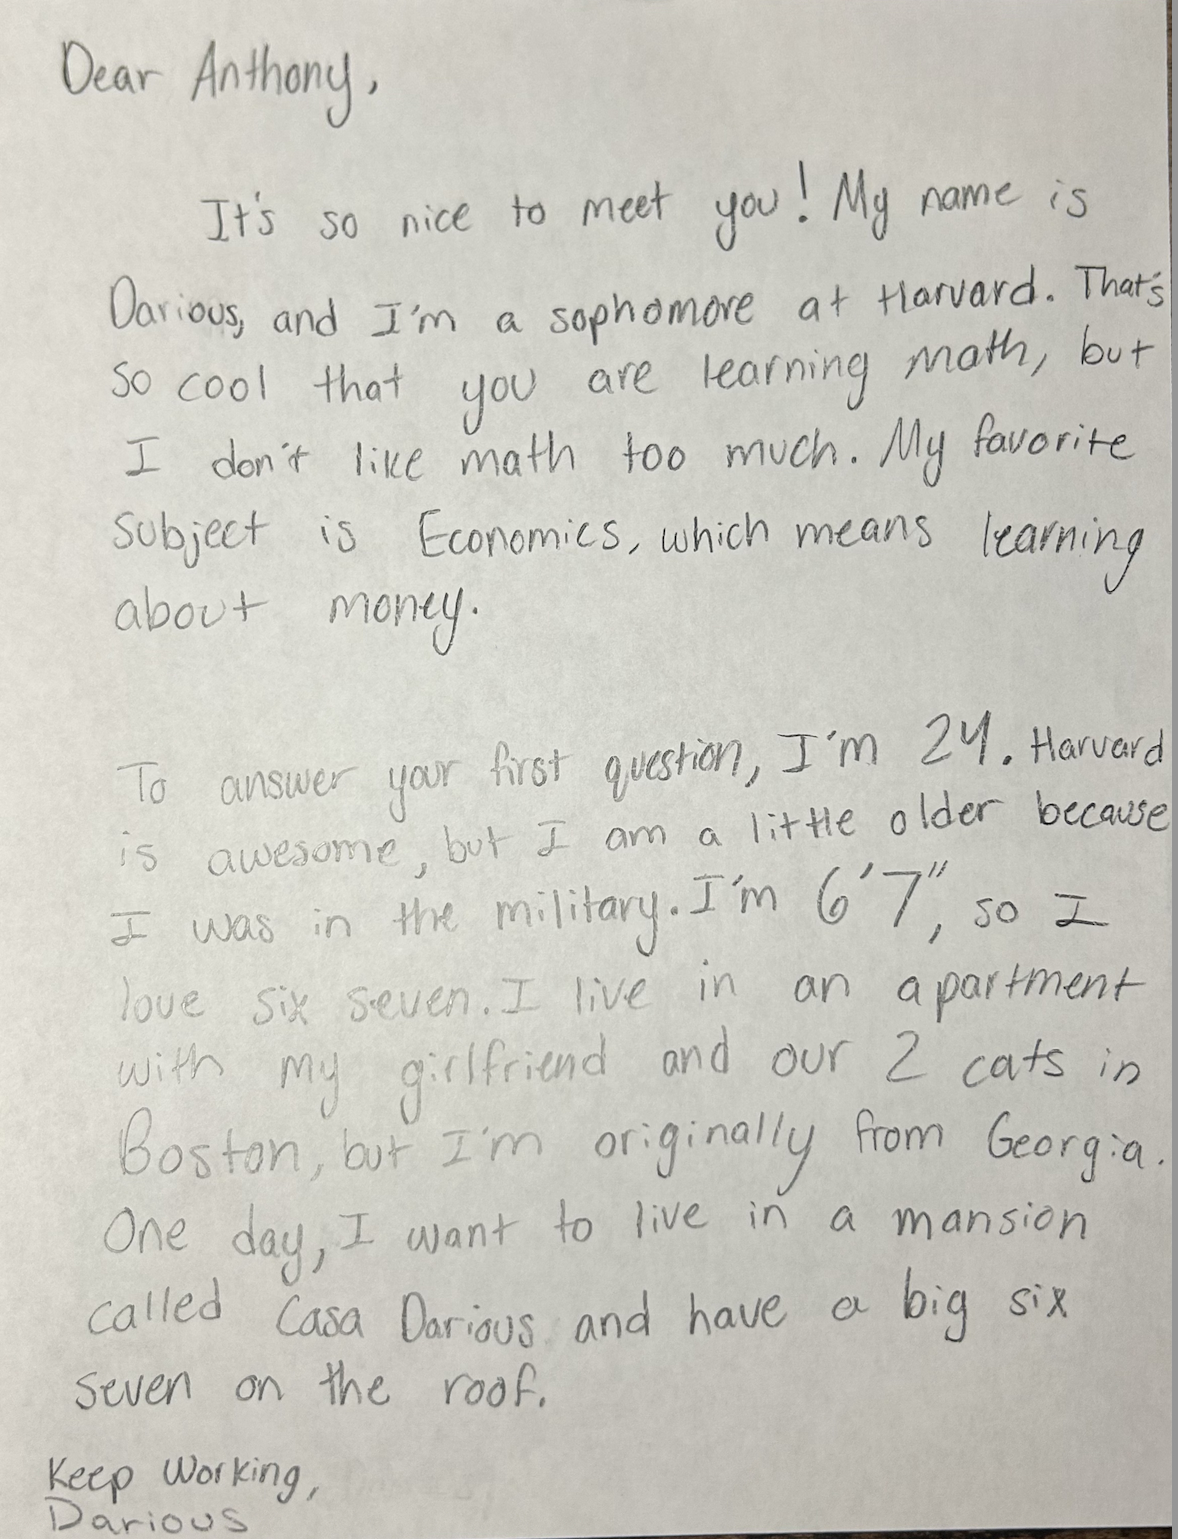 Dear Anthony,
It's so nice to meet you! My name is
Darious, and I'm a sophomore at Harvard. That's
so cool that you are learning math, but
I don't like math too much. My favorite
subject is Economics, which means learning
about money.
To answer your first question, I'm 24. Harvard
is awesome, but I am a little older because
I was in the military. I'm 6'7", so I
love six seven. I live in an apartment
with my girlfriend and our 2 cats in
Boston, but I'm originally from Georgia.
One day, I want to live in a mansion
called Casa Darious and have a big six
seven on the roof.
Keep Working,
Darious